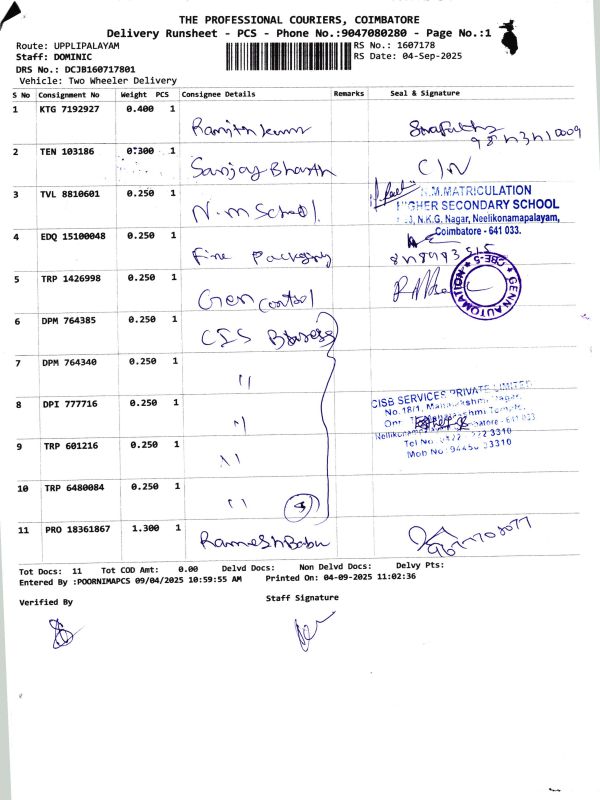 THE PROFESSIONAL COURIERS, COIMBATORE
Delivery Runsheet - PCS - Phone No.:9047080280 - Page No.:1
Route: UPPLIPALAYAM RS No.: 1607178
Staff: DOMINIC RS Date: 04-Sep-2025
DRS No.: DCJB160717801
Vehicle: Two Wheeler Delivery
S No Consignment No Weight PCS Consignee Details Remarks Seal & Signature
1 KTG 7192927 0.400 1
2 TEN 103186 0.300 1 Sanjay Bharath
3 TVL 8810601 0.250 1 N.m School.
N.M.MATRICULATION
HIGHER SECONDARY SCHOOL
N.K.G. Nagar, Neelikonamapalayam,
Coimbatore - 641 033.
4 EDQ 15100048 0.250 1 Fine Packaging
5 TRP 1426998 0.250 1 Gen Control
GENN AUTOMATION ★ CBE-5 ★
6 DPM 764385 0.250 1
7 DPM 764340 0.250 1 "
8 DPI 777716 0.250 1 "
CISB SERVICES PRIVATE LIMITED
No.18/1,
9 TRP 601216 0.250 1 "
10 TRP 6480084 0.250 1 "
11 PRO 18361867 1.300 1 Ramesh Babu
Tot Docs: 11 Tot COD Amt: 0.00 Delvd Docs: Non Delvd Docs: Delvy Pts:
Entered By :POORNIMAPCS 09/04/2025 10:59:55 AM Printed On: 04-09-2025 11:02:36
Verified By Staff Signature